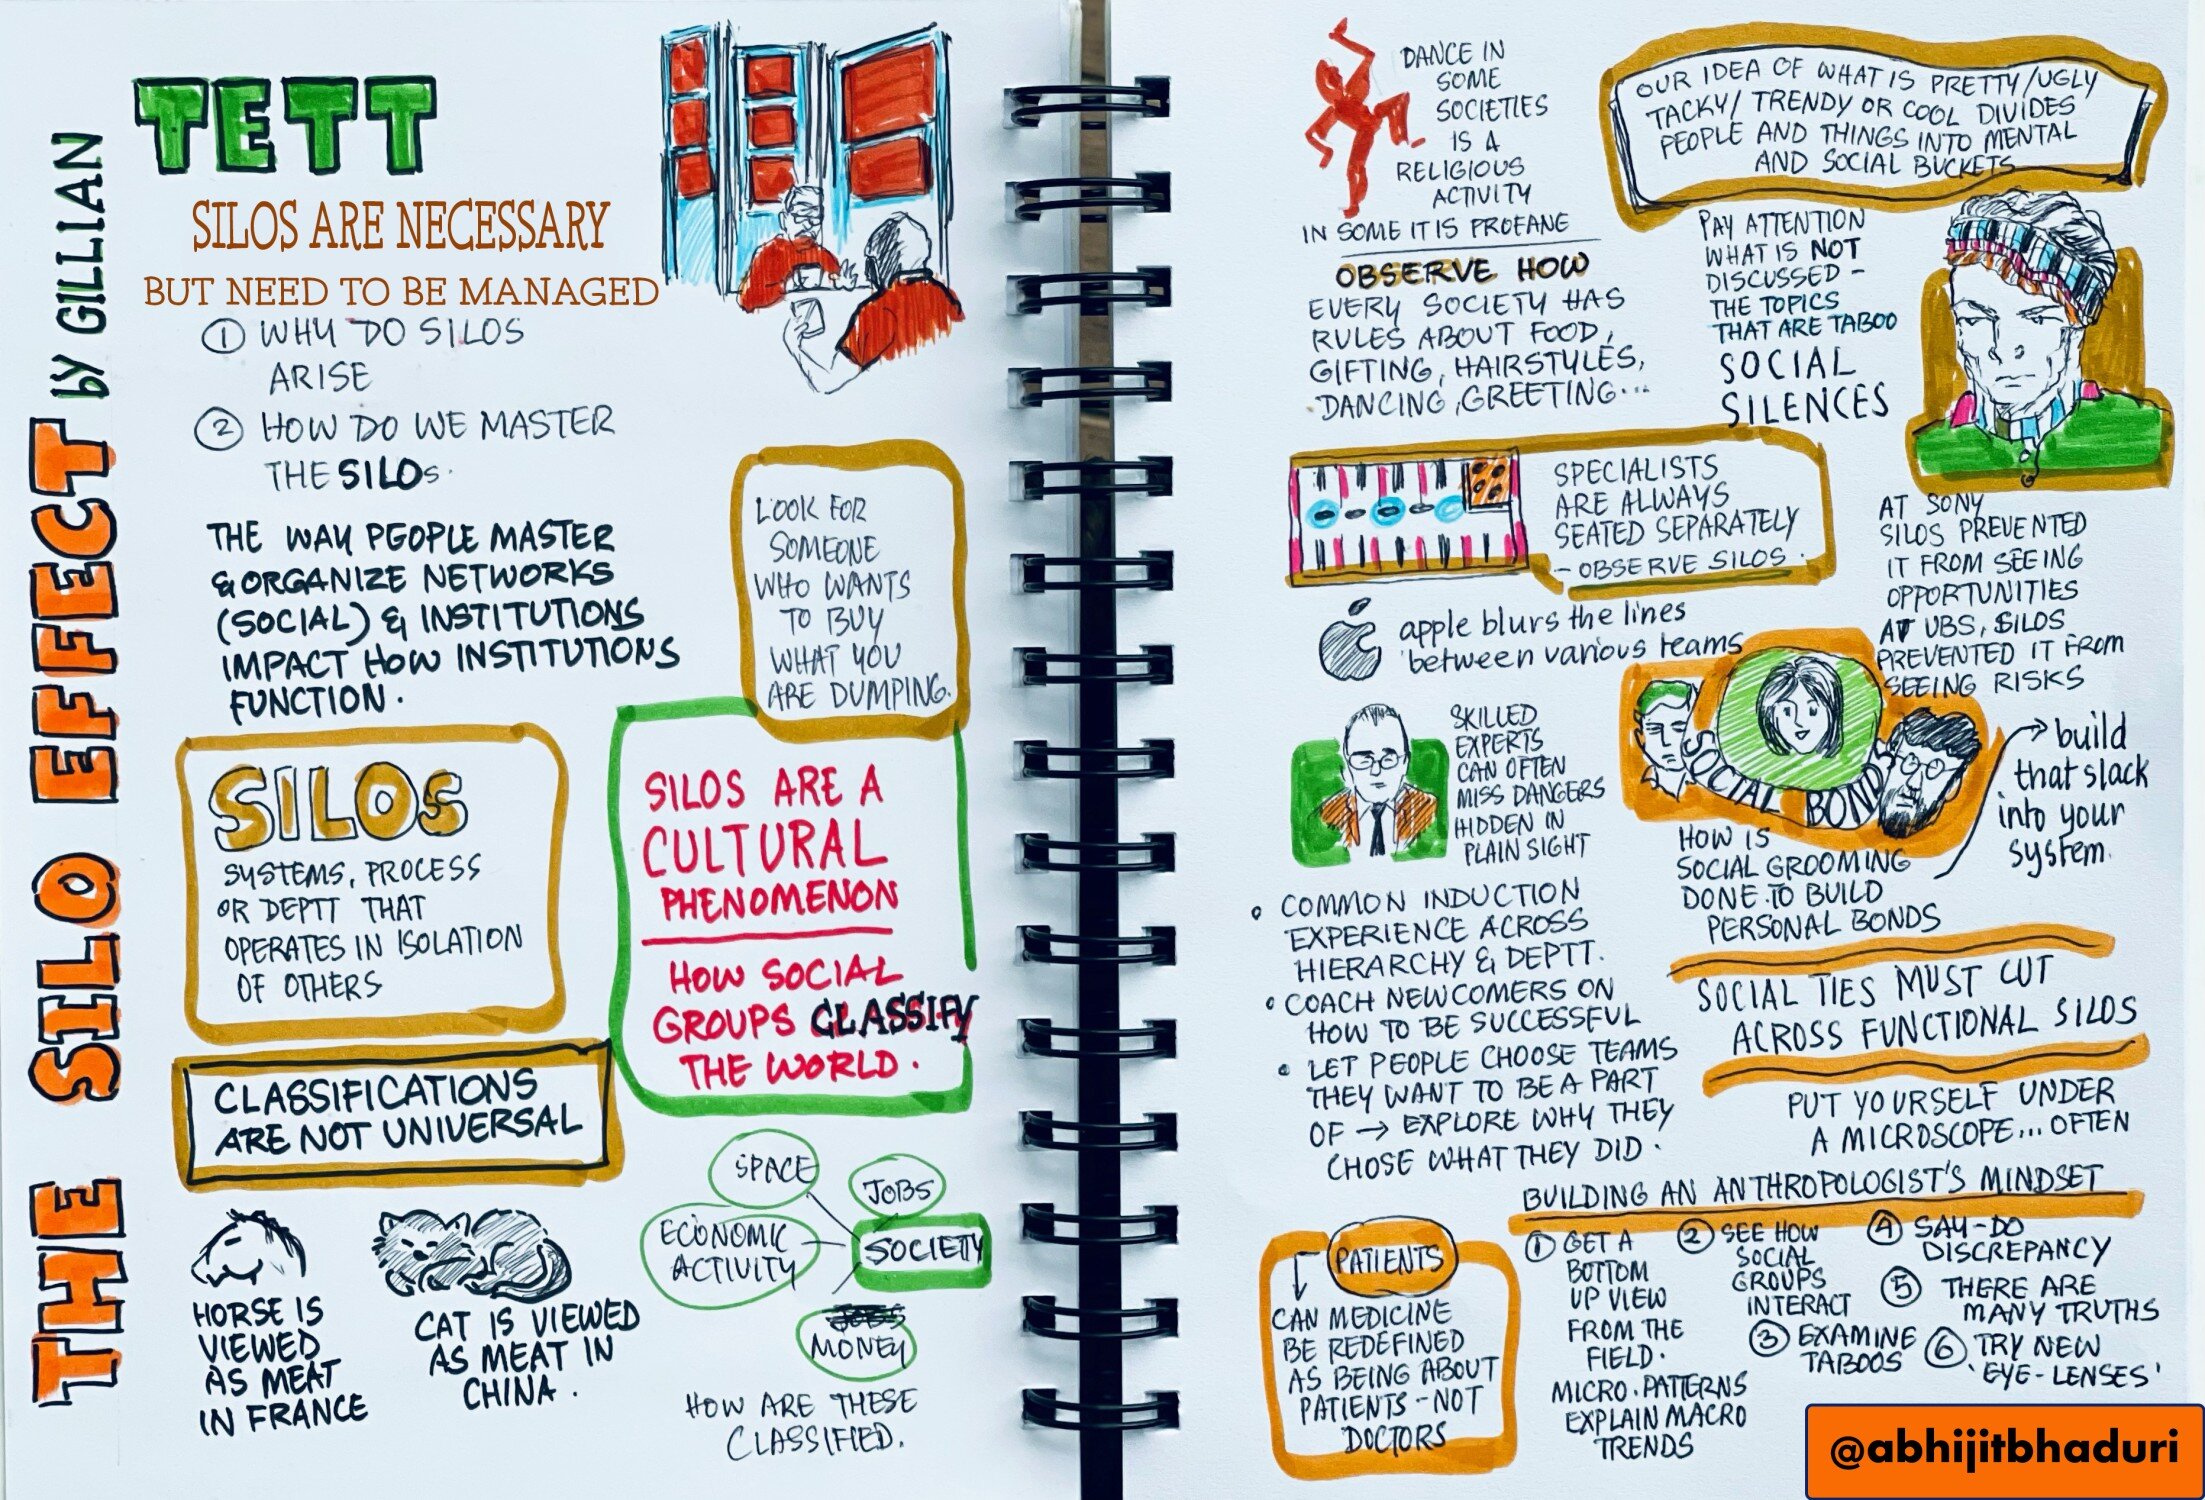 THE SILO EFFECT by GILLIAN
TETT
SILOS ARE NECESSARY
BUT NEED TO BE MANAGED
① WHY DO SILOS
ARISE
② HOW DO WE MASTER
THE SILOs.
THE WAY PEOPLE MASTER
& ORGANIZE NETWORKS
(SOCIAL) & INSTITUTIONS
IMPACT HOW INSTITUTIONS
FUNCTION.
LOOK FOR
SOMEONE
WHO WANTS
TO BUY
WHAT YOU
ARE DUMPING.
SILOs
SYSTEMS, PROCESS
OR DEPTT THAT
OPERATES IN ISOLATION
OF OTHERS
SILOS ARE A
CULTURAL
PHENOMENON
HOW SOCIAL
GROUPS CLASSIFY
THE WORLD.
CLASSIFICATIONS
ARE NOT UNIVERSAL
HORSE IS
VIEWED
AS MEAT
IN FRANCE
CAT IS VIEWED
AS MEAT IN
CHINA.
SPACE
JOBS
ECONOMIC
ACTIVITY
SOCIETY
JOBS
MONEY
HOW ARE THESE
CLASSIFIED.
DANCE IN
SOME
SOCIETIES
IS A
RELIGIOUS
ACTIVITY
IN SOME IT IS PROFANE
OBSERVE HOW
EVERY SOCIETY HAS
RULES ABOUT FOOD,
GIFTING, HAIRSTYLES,
DANCING, GREETING...
OUR IDEA OF WHAT IS PRETTY/UGLY
TACKY/ TRENDY OR COOL DIVIDES
PEOPLE AND THINGS INTO MENTAL
AND SOCIAL BUCKETS
PAY ATTENTION
WHAT IS NOT
DISCUSSED -
THE TOPICS
THAT ARE TABOO
SOCIAL
SILENCES
SPECIALISTS
ARE ALWAYS
SEATED SEPARATELY
- OBSERVE SILOS.
AT SONY
SILOS PREVENTED
IT FROM SEEING
OPPORTUNITIES
AT UBS, SILOS
PREVENTED IT FROM
SEEING RISKS
apple blurs the lines
between various teams
SKILLED
EXPERTS
CAN OFTEN
MISS DANGERS
HIDDEN IN
PLAIN SIGHT
SOCIAL BONDS
→ build
that slack
into your
system.
HOW IS
SOCIAL GROOMING
DONE TO BUILD
PERSONAL BONDS
• COMMON INDUCTION
EXPERIENCE ACROSS
HIERARCHY & DEPTT.
• COACH NEWCOMERS ON
HOW TO BE SUCCESSFUL
• LET PEOPLE CHOOSE TEAMS
THEY WANT TO BE A PART
OF → EXPLORE WHY THEY
CHOSE WHAT THEY DID.
SOCIAL TIES MUST CUT
ACROSS FUNCTIONAL SILOS
PUT YOURSELF UNDER
A MICROSCOPE... OFTEN
BUILDING AN ANTHROPOLOGIST'S MINDSET
PATIENTS
CAN MEDICINE
BE REDEFINED
AS BEING ABOUT
PATIENTS - NOT
DOCTORS
① GET A
BOTTOM
UP VIEW
FROM THE
FIELD.
MICRO.PATTERNS
EXPLAIN MACRO
TRENDS
② SEE HOW
SOCIAL
GROUPS
INTERACT
③ EXAMINE
TABOOS
④ SAY-DO
DISCREPANCY
⑤ THERE ARE
MANY TRUTHS
⑥ TRY NEW
'EYE-LENSES'
@abhijitbhaduri